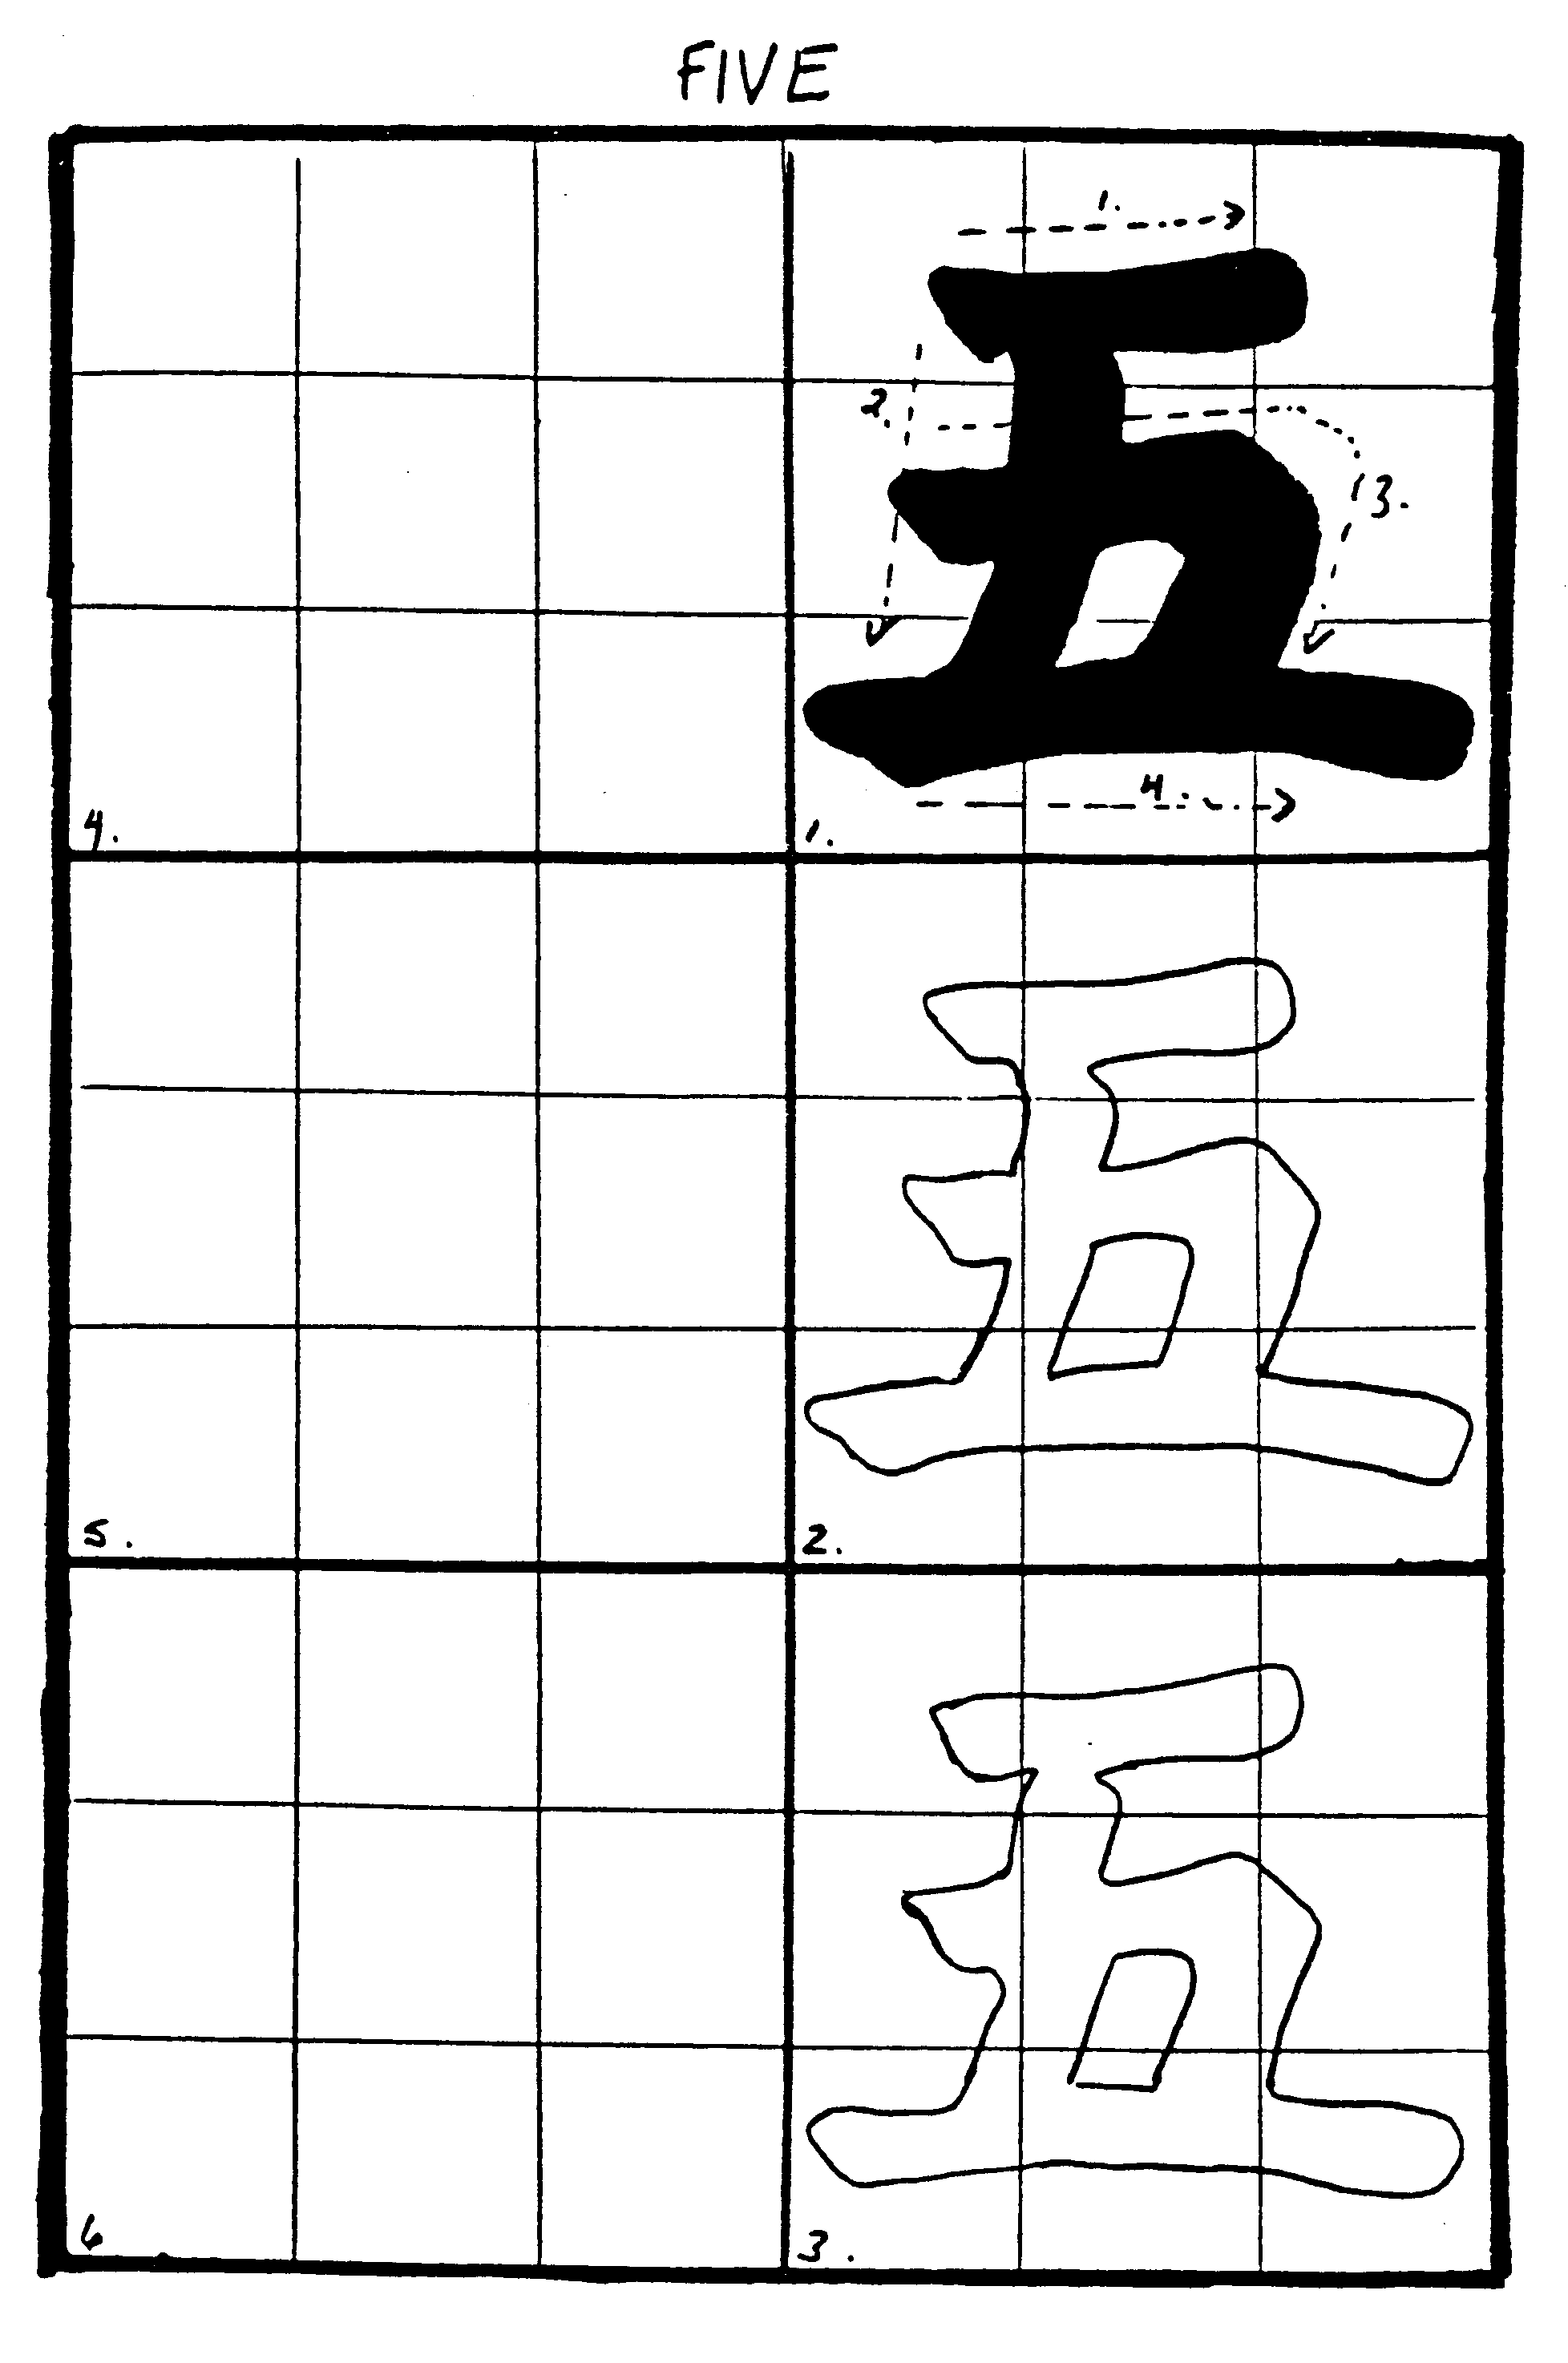 FIVE
1.
五
2.
3.
4.
1.
五
2.
五
3.
4.
5.
6